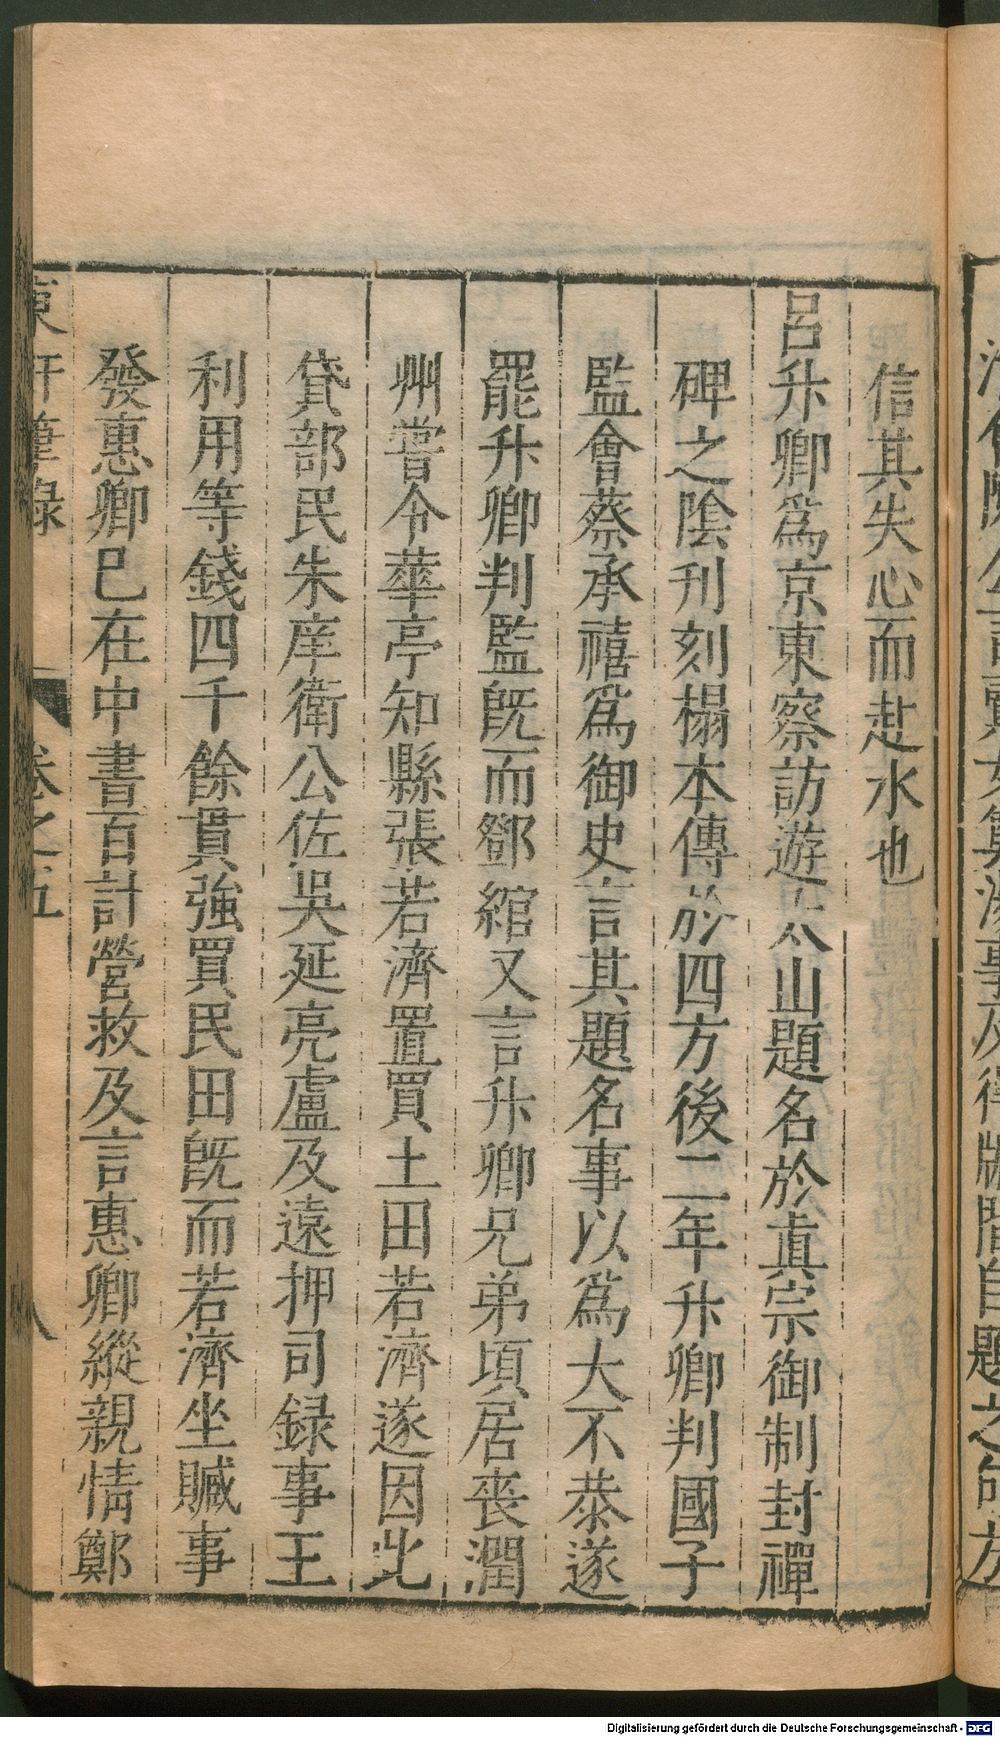 信其失心而赴水也
呂升卿爲京東察訪遊太山題名於眞宗御制封禪
碑之陰刋刻榻本傳於四方後二年升卿判國子
監會蔡承禧爲御史言其題名事以爲大不恭遂
罷升卿判監旣而鄧綰又言升卿兄弟頃居喪潤
州嘗令華亭知縣張若濟置買土田若濟遂因此
貸部民朱庠衛公佐吳延亮盧及遠押司録事王
利用等錢四千餘貫強買民田旣而若濟坐贓事
發惠卿巳在中書百計營救及言惠卿縱親情鄭
東軒筆錄 卷之五 八
Digitalisierung gefördert durch die Deutsche Forschungsgemeinschaft - DFG